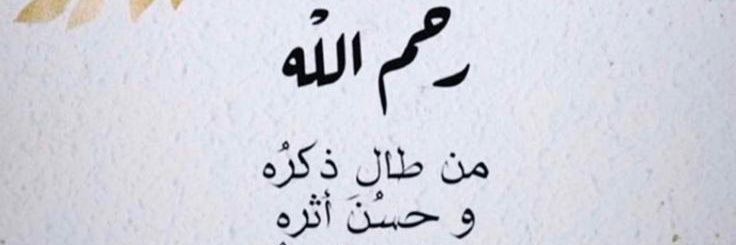 رحم الله
من طال ذكرُه
و حسُنَ أثره